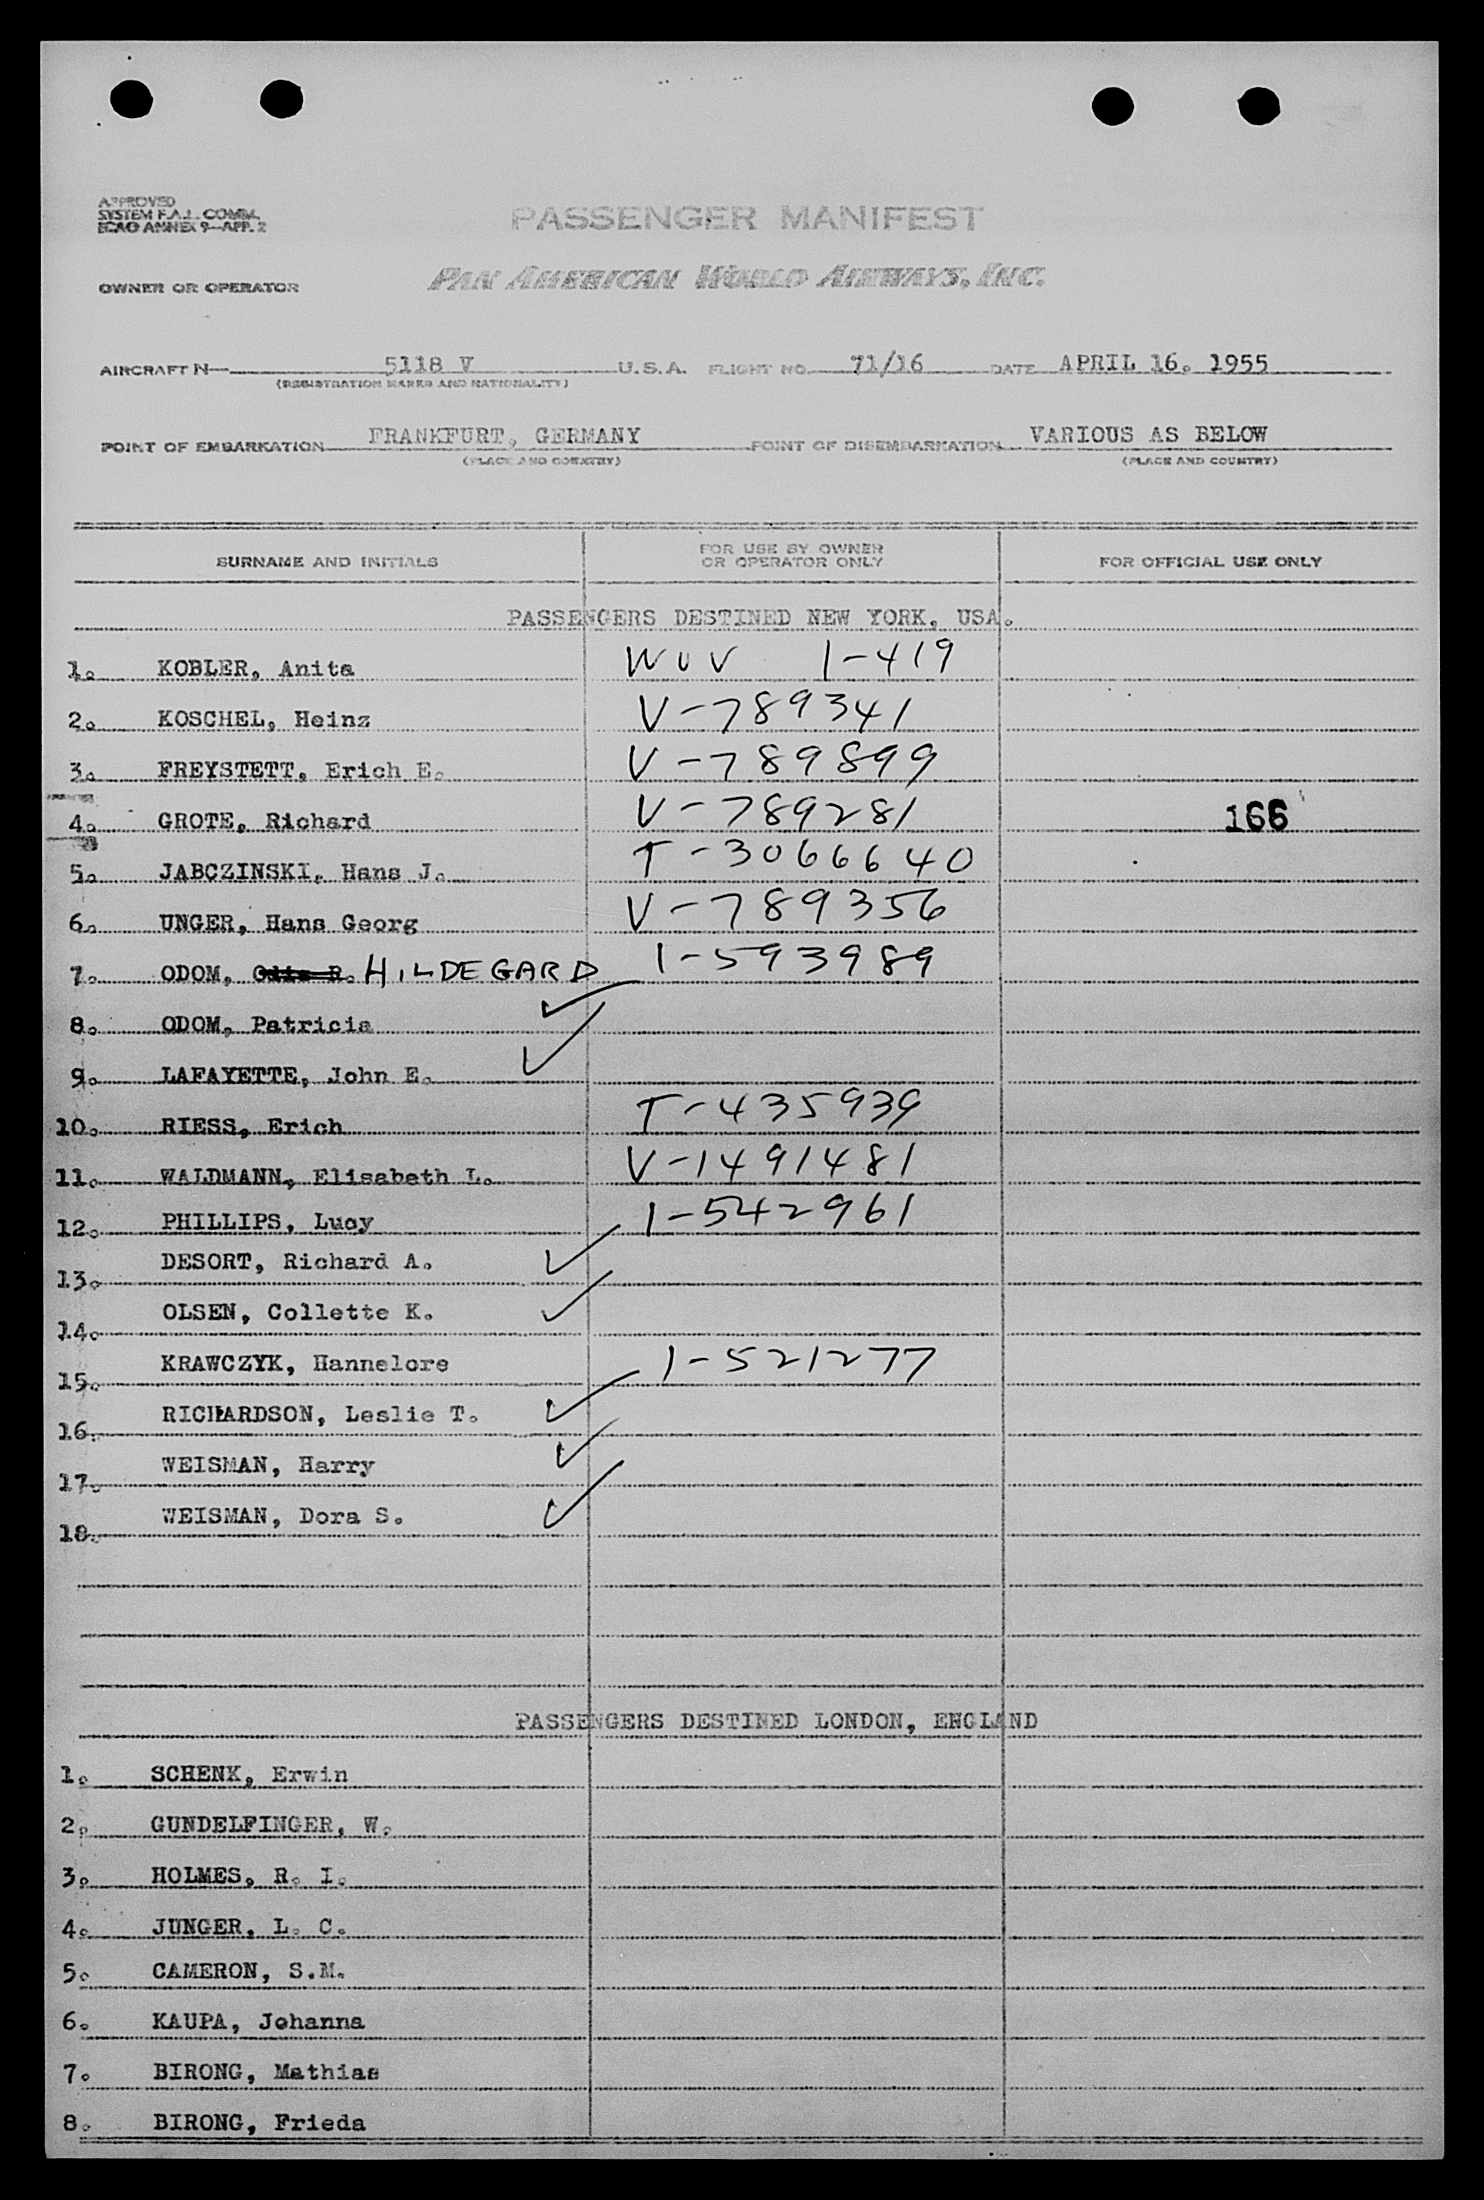 APPROVED
SYSTEM F.A.L. COMM.
ICAO ANNEX 9—APP. 2
PASSENGER MANIFEST
OWNER OR OPERATOR PAN AMERICAN WORLD AIRWAYS, INC.
AIRCRAFT N— 5118 V U.S.A. FLIGHT NO. 71/16 DATE APRIL 16, 1955
(REGISTRATION MARKS AND NATIONALITY)
POINT OF EMBARKATION FRANKFURT, GERMANY POINT OF DISEMBARKATION VARIOUS AS BELOW
(PLACE AND COUNTRY) (PLACE AND COUNTRY)
SURNAME AND INITIALS FOR USE BY OWNER OR OPERATOR ONLY FOR OFFICIAL USE ONLY
PASSENGERS DESTINED NEW YORK, USA.
1. KOBLER, Anita WUV 1-419
2. KOSCHEL, Heinz V-789341
3. FREYSTETT, Erich E. V-789899
4. GROTE, Richard V-789281 166
5. JABCZINSKI, Hans J. T-3066640
6. UNGER, Hans Georg V-789356
7. ODOM, HILDEGARD 1-593989
8. ODOM, Patricia
9. LAFAYETTE, John E.
10. RIESS, Erich T-435939
11. WALDMANN, Elisabeth L. V-1491481
12. PHILLIPS, Lucy 1-542961
13. DESORT, Richard A.
14. OLSEN, Collette K.
15. KRAWCZYK, Hannelore 1-521277
16. RICHARDSON, Leslie T.
17. WEISMAN, Harry
18. WEISMAN, Dora S.
PASSENGERS DESTINED LONDON, ENGLAND
1. SCHENK, Erwin
2. GUNDELFINGER, W.
3. HOLMES, R. I.
4. JUNGER, L. C.
5. CAMERON, S.M.
6. KAUPA, Johanna
7. BIRONG, Mathias
8. BIRONG, Frieda